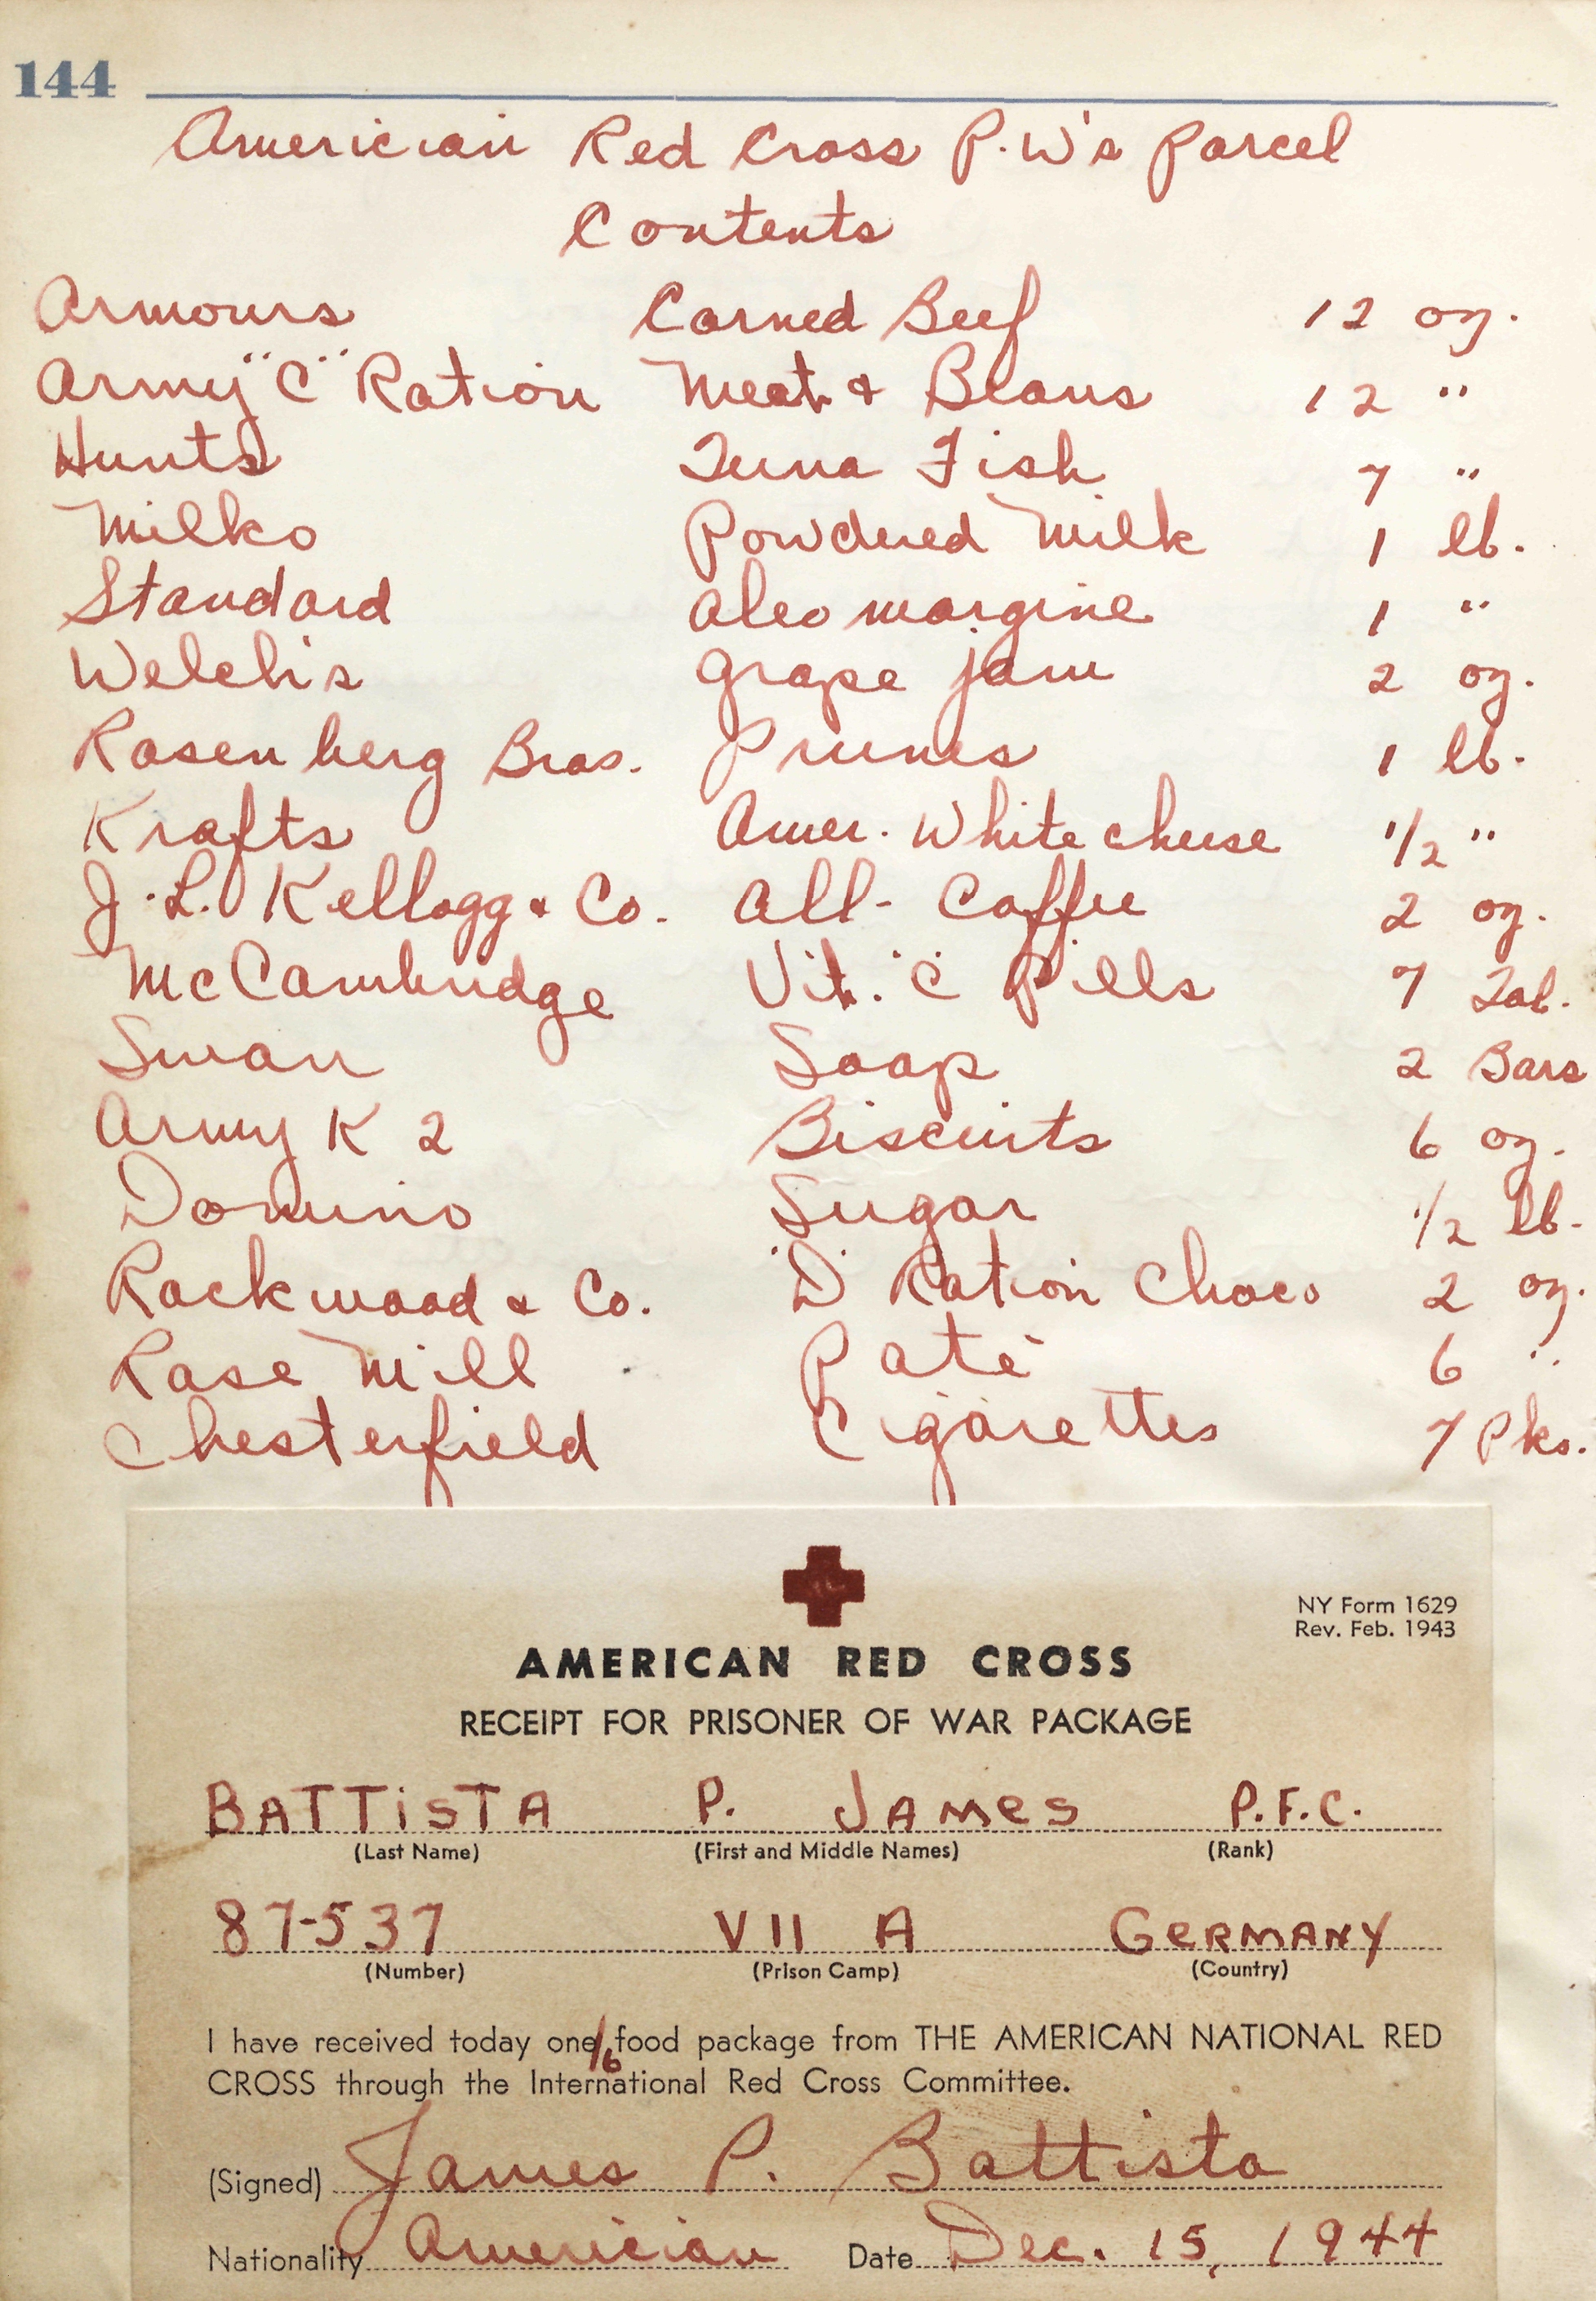 144
Americian Red Cross P.W's Parcel
Contents
Armours Corned Beef 12 oz.
Army "C" Ration Meat & Beans 12 "
Hunts Tuna Fish 7 "
Milko Powdered Milk 1 lb.
Standard oleo margine 1 "
Welch's grape jam 2 oz.
Rosenberg Bros. Prunes 1 lb.
Krafts Amer. White cheese 1/2 "
J.L. Kellogg & Co. All- Coffee 2 oz.
McCambridge Vit. "C" Pills 7 Tab.
Swan Soap 2 Bars
Army K 2 Biscuits 6 oz.
Domino Sugar 1/2 lb.
Rockwood & Co. "D" Ration Choco 2 oz.
Rose Mill Paté 6 "
Chesterfield Cigarettes 7 Pks.
NY Form 1629
Rev. Feb. 1943
AMERICAN RED CROSS
RECEIPT FOR PRISONER OF WAR PACKAGE
BATTiSTA P. JAMes P.F.C.
(Last Name) (First and Middle Names) (Rank)
87-537 VII A GeRMANY
(Number) (Prison Camp) (Country)
I have received today one/6 food package from THE AMERICAN NATIONAL RED
CROSS through the International Red Cross Committee.
(Signed) James P. Battista
Nationality Americian Date Dec. 15, 1944